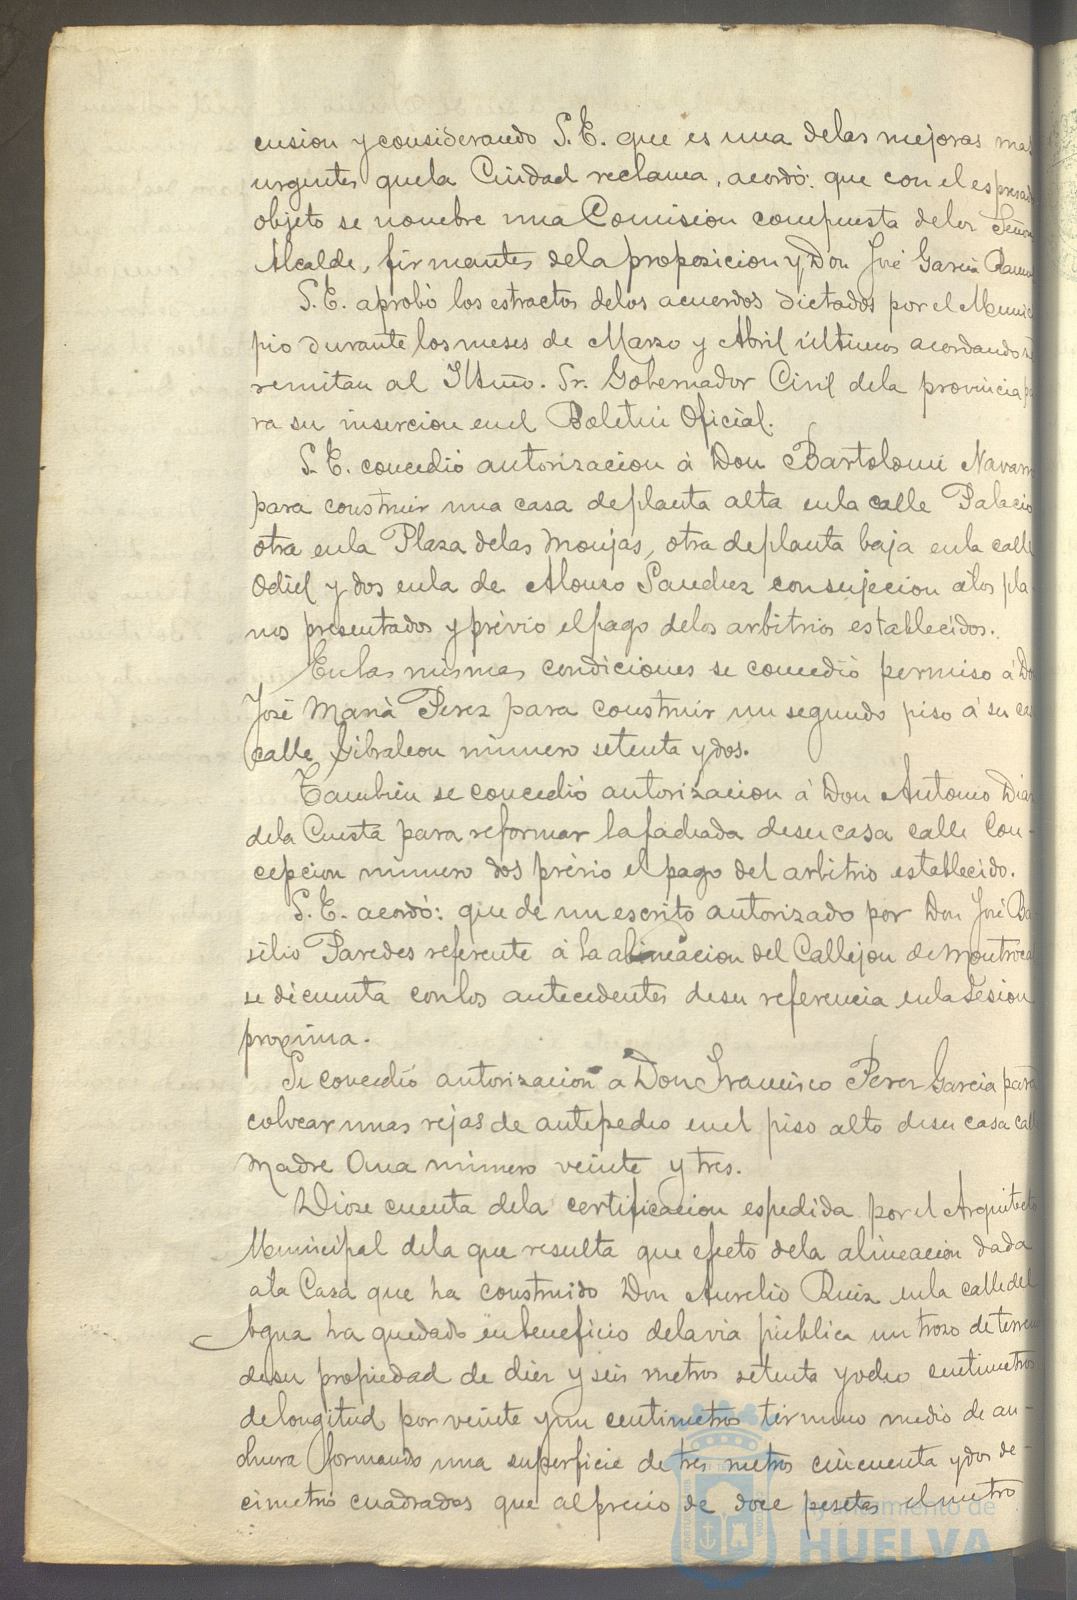 cusion y considerando S.E. que es una delas mejoras mas
urgentes quela Ciudad reclama, acordó: que con el espresado
objeto se nombre una Comision compuesta delos Señor
Alcalde, firmantes dela proposicion y Don José Garcia Ramo
S.E. aprobó los estractos delos acuerdos dictados por el Munici
pio durante los meses de Marzo y Abril últimos acordando se
remitan al Iltmo. Sr. Gobernador Civil dela provincia pa
ra su insercion enel Boletin Oficial.
S.E. concedió autorizacion á Don Bartolomé Navarro
para construir una casa deplanta alta enla calle Palacio
otra enla Plaza delas Monjas, otra deplanta baja enla calle
Odiel y dos enla de Alonso Sanchez consujecion álos pla
nos presentados y prévio elpago delos arbitrios establecidos.
Enlas mismas condiciones se concedió permiso á Don
José Maria Perez para construir un segundo piso á su casa
calle Gibraleon número setenta ydos.
Tambien se concedió autorizacion á Don Antonio Diaz
dela Cuesta para reformar lafachada desu casa calle Con-
cepcion número dos prévio el pago del arbitrio establecido.
S.E. acordó: que de un escrito autorizado por Don José Ba-
silio Paredes referente á la alineacion del Callejon de Montroca
se dé cuenta conlos antecedentes desu referencia enla Sesion
proxima.
Se concedió autorizacion a Don Francisco Perez Garcia para
colocar unas rejas de antepecho enel piso alto desu casa calle
Madre Ana número veinte y tres.
Diose cuenta dela certificacion espedida por el Arquitecto
Municipal dela que resulta que efecto dela alineacion dada
ala Casa que ha construido Don Aurelio Ruiz enla calle del
Agua ha quedado en beneficio delavia pública un trozo de terreno
desu propiedad de diez y seis metros setenta yocho centimetros
delongitud por veinte yun centimetros término medio de an-
chura formando una superficie de tres metros cincuenta ydos de-
cimetros cuadrados que alprecio de doce pesetas el metro
Ayuntamiento de
HUELVA